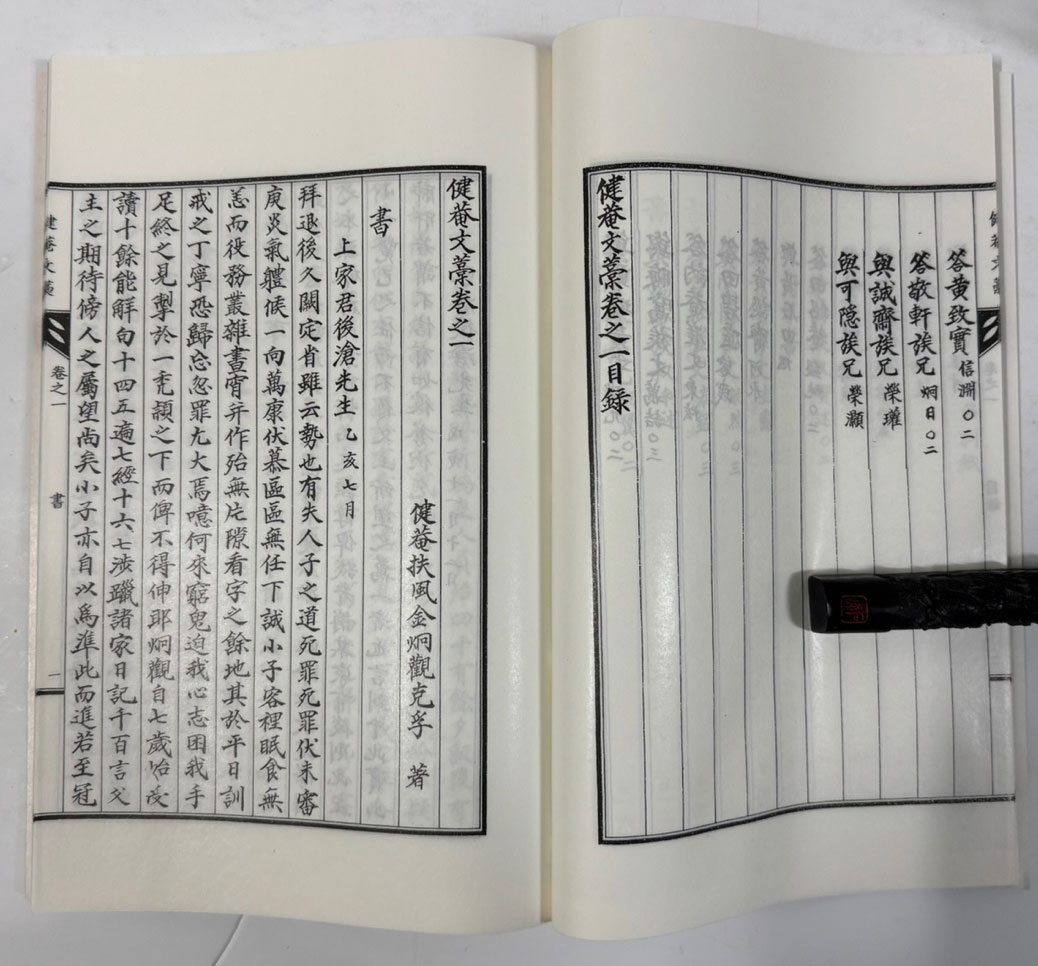 答黃致實 信淵〇二
答敬軒族兄 炯日〇二
與誠齋族兄 榮璀
與可隱族兄 榮灝
健菴文藁卷之一目錄
健菴文藁卷之一
健菴扶風金炯觀克孚 著
書
上家君後滄先生 乙亥七月
拜退後久闕定省雖云勢也有失人子之道死罪死罪伏未審
庚炎氣體候一向萬康伏慕區區無任下誠小子客裡眠食無
恙而役務叢雜晝宵并作殆無片隙看字之餘地其於平日訓
戒之丁寧恐歸忘忽罪尢大焉噫何來窮鬼迫我心志困我手
足終之見掣於一禿穎之下而俾不得伸耶炯觀自七歲始受
讀十餘能解句十四五遍七經十六七涉躐諸家日記千百言父
主之期待傍人之屬望尚矣小子亦自以爲準此而進若至冠
卷之一
書
一